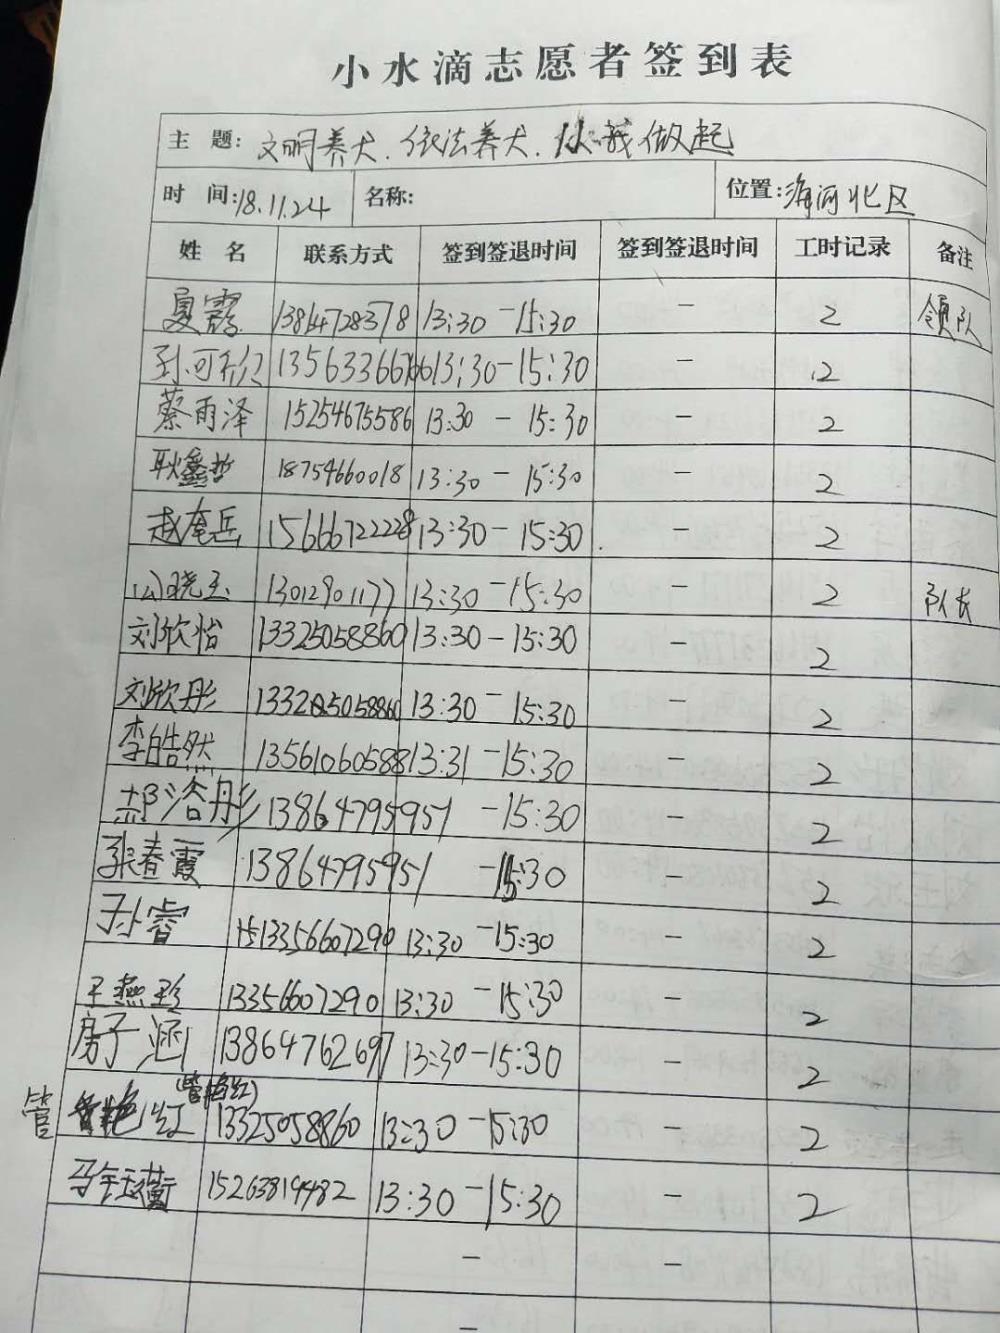 小水滴志愿者签到表
主 题: 文明养犬.依法养犬.从我做起
时 间: 18.11.24 名称: 位置: 海河北区
姓 名 联系方式 签到签退时间 签到签退时间 工时记录 备注
夏霞 13814728378 13:30 -15:30 - 2 领队
孙可欣 13563366766 13:30-15:30 - 2
蔡雨泽 15254675586 13:30 - 15:30 - 2
耿鑫哲 18754660018 13:30 - 15:30 - 2
赵奎岳 15666722228 13:30 - 15:30 - 2
13012901177 13:30 -15:30 - 2 队长
刘欣怡 13325058860 13:30-15:30 - 2
刘欣彤 13:30 - 15:30 - 2
李皓然 13561060588 13:31 -15:30 - 2
溶彤 13864795951 -15:30 - 2
张春霞 13864795951 -15:30 - 2
孙睿 13:30 -15:30 - 2
王燕珍 13356607290 13:30 -15:30 - 2
房子涵 13864762697 13:30-15:30 - 2
管艳红 (管艳红) 13325058860 13:30 -15:30 - 2
15263819482 13:30 -15:30 - 2
- -
-